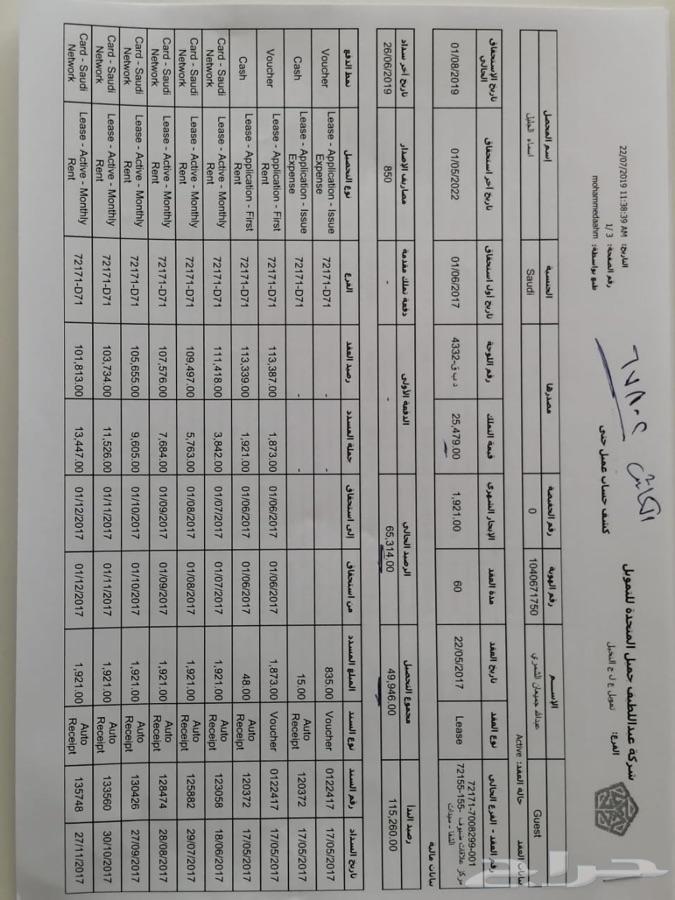 شركة عبداللطيف جميل المتحدة للتمويل
الفرع: تمويل ع ل ج النخيل
كشف حساب عميل حتى
الكاش ٦٧٨٠٢
التاريخ: 22/07/2019 11:38:39 AM
رقم الصفحة: 1/ 3
طبع بواسطة: mohammedaahm
بيانات العقد
حالة العقد: Active
الإسم رقم الهوية رقم الحفيظة مصدرها الجنسية إسم المحصل
Guest 1040671750 0 Saudi
رقم العقد - الفرع الحالي نوع العقد تاريخ العقد مدة العقد الإيجار الشهري قيمة التملك رقم اللوحة تاريخ أول استحقاق تاريخ آخر استحقاق تاريخ الإستحقاق الحالي
72171-7008299-001 Lease 22/05/2017 60 1,921.00 25,479.00 د ب ق-4332 01/06/2017 01/05/2022 01/08/2019
72155-155-
بيانات مالية
رصيد البدأ مجموع التحصيل الرصيد الحالي الدفعة الأولى دفعة تملك مقدمة مصاريف الإصدار تاريخ آخر سداد
115,260.00 49,946.00 65,314.00 - - 850 26/06/2019
تاريخ السداد رقم السند نوع السند المبلغ المسدد من استحقاق إلى استحقاق جملة المسدد رصيد العقد الفرع نوع التحصيل نمط الدفع
17/05/2017 0122417 Voucher 835.00 - - 72171-D71 Lease - Application - Issue Expense Voucher
17/05/2017 120372 Auto Receipt 15.00 - - 72171-D71 Lease - Application - Issue Expense Cash
17/05/2017 0122417 Voucher 1,873.00 01/06/2017 01/06/2017 1,873.00 113,387.00 72171-D71 Lease - Application - First Rent Voucher
17/05/2017 120372 Auto Receipt 48.00 01/06/2017 01/06/2017 1,921.00 113,339.00 72171-D71 Lease - Application - First Rent Cash
18/06/2017 123058 Auto Receipt 1,921.00 01/07/2017 01/07/2017 3,842.00 111,418.00 72171-D71 Lease - Active - Monthly Rent Card - Saudi Network
29/07/2017 125882 Auto Receipt 1,921.00 01/08/2017 01/08/2017 5,763.00 109,497.00 72171-D71 Lease - Active - Monthly Rent Card - Saudi Network
28/08/2017 128474 Auto Receipt 1,921.00 01/09/2017 01/09/2017 7,684.00 107,576.00 72171-D71 Lease - Active - Monthly Rent Card - Saudi Network
27/09/2017 130426 Auto Receipt 1,921.00 01/10/2017 01/10/2017 9,605.00 105,655.00 72171-D71 Lease - Active - Monthly Rent Card - Saudi Network
30/10/2017 133560 Auto Receipt 1,921.00 01/11/2017 01/11/2017 11,526.00 103,734.00 72171-D71 Lease - Active - Monthly Rent Card - Saudi Network
27/11/2017 135748 Auto Receipt 1,921.00 01/12/2017 01/12/2017 13,447.00 101,813.00 72171-D71 Lease - Active - Monthly Rent Card - Saudi Network
حراج